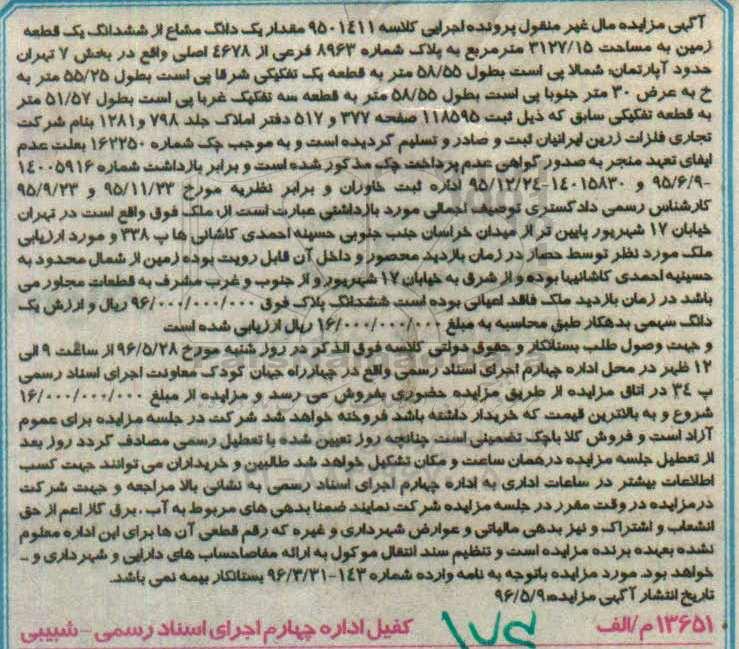 آگهی مزایده مال غیر منقول پرونده اجرایی کلاسه ۹۵۰۱۴۱۱ مقدار یک دانگ مشاع از ششدانگ یک قطعه
زمین به مساحت ۳۱۲۷/۱۵ مترمربع به پلاک شماره ۸۹۶۳ فرعی از ۴۶۷۸ اصلی واقع در بخش ۷ تهران
حدود آپارتمان: شمالا پی است بطول ۵۸/۵۵ متر به قطعه یک تفکیکی شرقا پی است بطول ۵۵/۲۵ متر به
خ به عرض ۳۰ متر جنوبا پی است بطول ۵۸/۵۵ متر به قطعه سه تفکیک غربا پی است بطول ۵۱/۵۷ متر
به قطعه تفکیکی سابق که ذیل ثبت ۱۱۸۵۹۵ صفحه ۳۷۷ و ۵۱۷ دفتر املاک جلد ۷۹۸ و ۱۲۸۱ بنام شرکت
تجاری فلزات زرین ایرانیان ثبت و صادر و تسلیم گردیده است و به موجب چک شماره ۱۶۲۲۵۰ بعلت عدم
ایفای تعهد منجر به صدور گواهی عدم پرداخت چک مذکور شده است و برابر بازداشت شماره ۱۴۰۰۵۹۱۶
-۹۵/۶/۹ و ۱۴۰۱۵۸۳۰-۹۵/۱۲/۲۴ اداره ثبت خاوران و برابر نظریه مورخ ۹۵/۱۱/۲۳ و ۹۵/۹/۲۳
کارشناس رسمی دادگستری توصیف اجمالی مورد بازداشتی عبارت است از: ملک فوق واقع است در تهران
خیابان ۱۷ شهریور پایین تر از میدان خراسان جنب جنوبی حسینه احمدی کاشانی ها پ ۳۳۸ و مورد ارزیابی
ملک مورد نظر توسط حصار در زمان بازدید محصور و داخل آن قابل رویت بوده زمین از شمال محدود به
حسینیه احمدی کاشانیها بوده و از شرق به خیابان ۱۷ شهریور و از جنوب و غرب مشرف به قطعات مجاور می
باشد در زمان بازدید ملک فاقد اعیانی بوده است ششدانگ پلاک فوق ۹۶/۰۰۰/۰۰۰/۰۰۰ ریال و ارزش یک
دانگ سهمی بدهکار طبق محاسبه به مبلغ ۱۶/۰۰۰/۰۰۰/۰۰۰ ریال ارزیابی شده است
و جهت وصول طلب بستانکار و حقوق دولتی کلاسه فوق الذکر در روز شنبه مورخ ۹۶/۵/۲۸ از ساعت ۹ الی
۱۲ ظهر در محل اداره چهارم اجرای اسناد رسمی واقع در چهارراه جهان کودک معاونت اجرای اسناد رسمی
پ ۳۴ در اتاق مزایده از طریق مزایده حضوری بفروش می رسد و مزایده از مبلغ ۱۶/۰۰۰/۰۰۰/۰۰۰
شروع و به بالاترین قیمت که خریدار داشته باشد فروخته خواهد شد شرکت در جلسه مزایده برای عموم
آزاد است و فروش کلا باچک تضمینی است چنانچه روز تعیین شده با تعطیل رسمی مصادف گردد روز بعد
از تعطیل جلسه مزایده درهمان ساعت و مکان تشکیل خواهد شد طالبین و خریداران می توانند جهت کسب
اطلاعات بیشتر در ساعات اداری به اداره چهارم اجرای اسناد رسمی به نشانی بالا مراجعه و جهت شرکت
درمزایده در وقت مقرر در جلسه مزایده شرکت نمایند ضمنا بدهی های مربوط به آب، برق گاز اعم از حق
انشعاب و اشتراک و نیز بدهی مالیاتی و عوارض شهرداری و غیره که رقم قطعی آن ها برای این اداره معلوم
نشده بعهده برنده مزایده است و تنظیم سند انتقال موکول به ارائه مفاصاحساب های دارایی و شهرداری و ...
خواهد بود. مورد مزایده باتوجه به نامه وارده شماره ۱۴۳-۹۶/۳/۳۱ بستانکار بیمه نمی باشد.
تاریخ انتشار آگهی مزایده: ۹۶/۵/۹
۱۳۶۵۱ م/الف
کفیل اداره چهارم اجرای اسناد رسمی - شبیبی